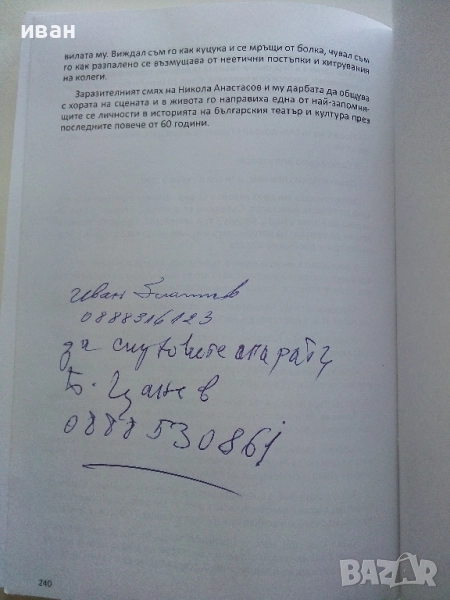 иван
вилата му. Виждал съм го как куцука и се мръщи от болка, чувал съм
го как разпалено се възмущава от неетични постъпки и хитрувания
на колеги.
Заразителният смях на Никола Анастасов и му дарбата да общува
с хората на сцената и в живота го направиха една от най-запомня-
щите се личности в историята на българския театър и култура през
последните повече от 60 години.
Иван
0888916123
за слуховите апарати
Б. Цанев
0888530861
240
BAZAR